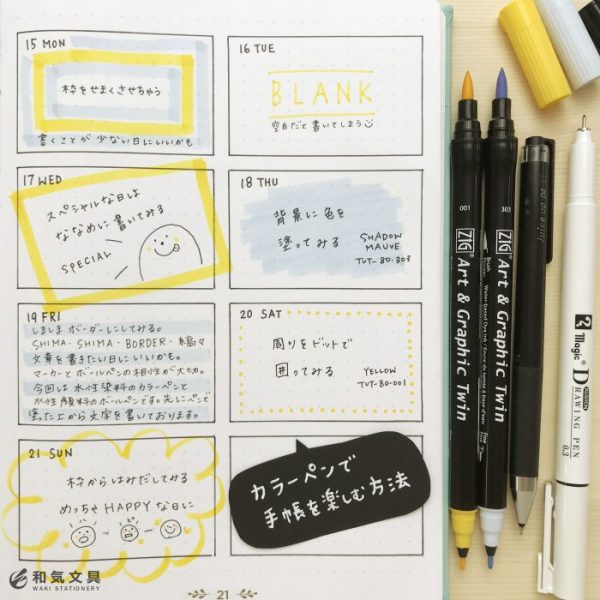 15 MON
枠をせまくさせちゃう
書くことが少ない日にいいかも
16 TUE
BLANK
空白だと書いてしまう
17 WED
スペシャルな日は
ななめに書いてみる
SPECIAL
18 THU
背景に色を
塗ってみる
SHADOW
MAUVE
TUT-80-303
19 FRI
しましまボーダーにしてみる。
SHIMA・SHIMA・BORDER・縞々
文章を書きたい日にいいかも。
マーカーとボールペンの相性が大切。
今回は水性染料のカラーペンと
水性顔料のボールペンです。先にペンで
塗った上から文字を書いております。
20 SAT
周りをドットで
囲ってみる
YELLOW
TUT-80-001
21 SUN
枠からはみだしてみる
めっちゃHAPPYな日に
カラーペンで
手帳を楽しむ方法
21
和気文具
WAKI STATIONERY
001
ZIG Art & Graphic Twin
303
ZIG Art & Graphic Twin
Magic
DRAWING PEN
0.3